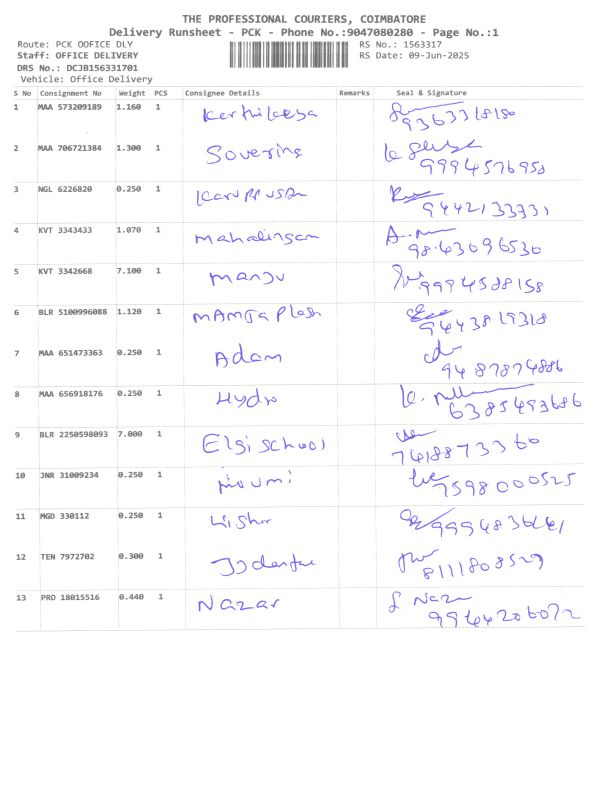 THE PROFESSIONAL COURIERS, COIMBATORE
Delivery Runsheet - PCK - Phone No.:9047080280 - Page No.:1
Route: PCK OOFICE DLY RS No.: 1563317
Staff: OFFICE DELIVERY RS Date: 09-Jun-2025
DRS No.: DCJB156331701
Vehicle: Office Delivery
S No Consignment No Weight PCS Consignee Details Remarks Seal & Signature
1 MAA 573209189 1.160 1
2 MAA 706721384 1.300 1 Sovering
9994576958
3 NGL 6226820 0.250 1
9442133331
4 KVT 3343433 1.070 1 Mahalingam
9843096530
5 KVT 3342668 7.100 1 Manju 9994588158
6 BLR 5100996088 1.120 1
9443819318
7 MAA 651473363 0.250 1 Adam
9487874886
8 MAA 656918176 0.250 1 Hydro
6385493686
9 BLR 2250598093 7.000 1 Elgi School
7418873360
10 JNR 31009234 0.250 1 Moumi
7598000525
11 MGD 330112 0.250 1
12 TEN 7972702 0.300 1
8111808529
13 PRO 18015516 0.440 1 Nazar
9944206072